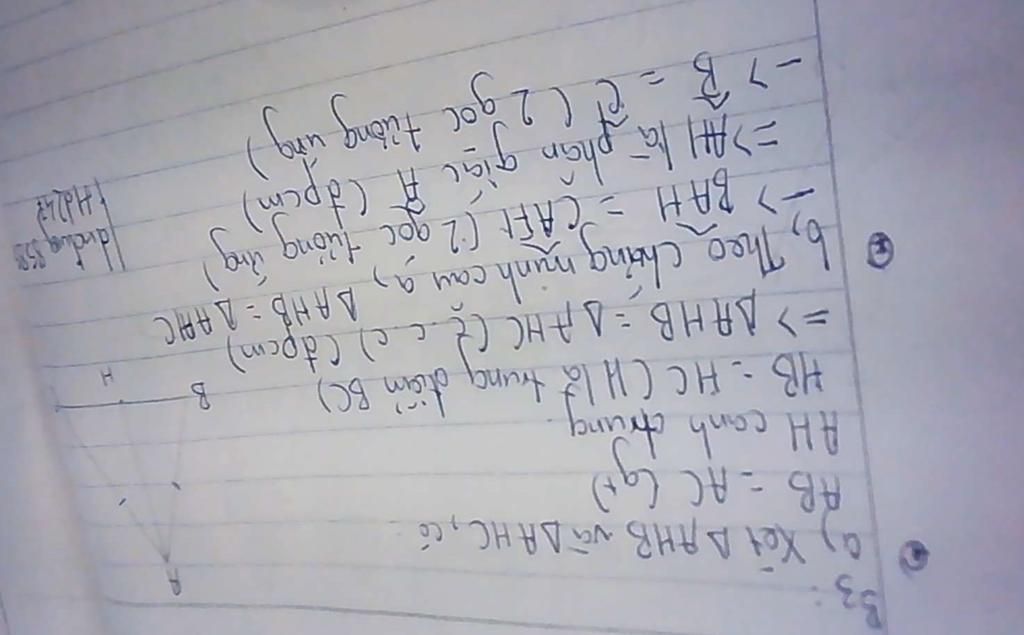 B3:
a, Xét ΔAHB và ΔAHC, có
AB = AC (gt)
AH cạnh chung
HB = HC (H là trung điểm BC)
=> ΔAHB = ΔAHC (c.c.c) (đpcm)
b, Theo chứng minh câu a, ΔAHB = ΔAHC
-> BAH = CAH (2 góc tương ứng)
=> AH là phân giác A (đpcm)
-> B = C (2 góc tương ứng)
A
B
H